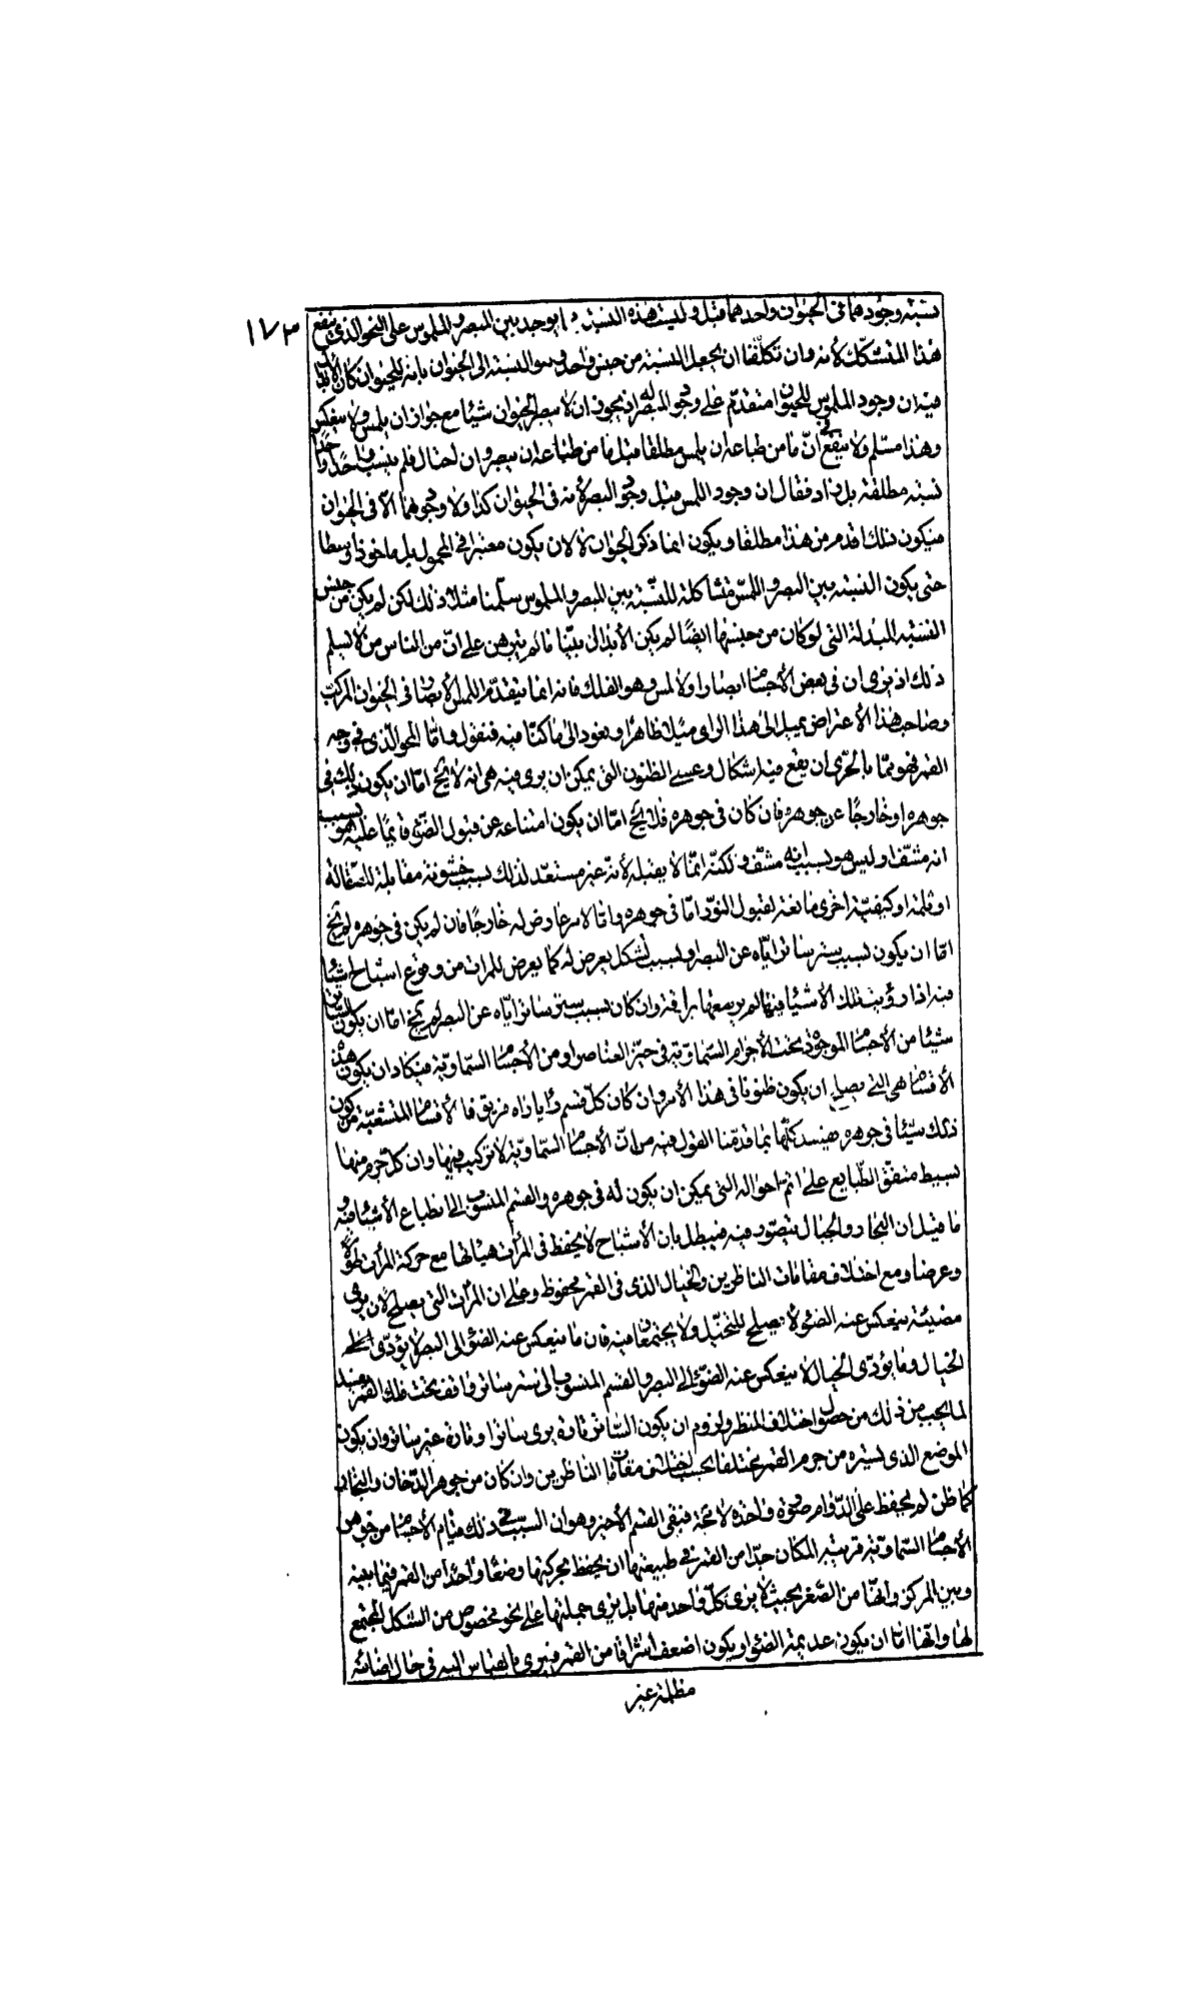 ١٧٣
نسبة وجودهما فى الحيوان واحدهما قبل وليست هذه النسبة مما يوجد بين المبصر والملموس على النحو الذى ينفع
هذا المتشكك لأنه وان تكلفنا ان يجعل النسبة من جنس واحد وهو النسبة الى الحيوان بانه للحيوان كان الأبدال
فيه ان وجود الملموس للحيوان متقدم على وجود المبصر له اذ يجوز ان لا يبصر الحيوان شيئا مع جواز ان يلمس ولا ينعكس
وهذا مسلم ولا ينفع فى ان ما من طباعه ان يلمس مطلقا قبل ما من طباعه ان يبصر وان احتال فلم ينسب واحدًا واحدًا
نسبة مطلقة بل زاد فقال ان وجود اللمس قبل وجود البصر لأنه فى الحيوان كذا ولا وجود لهما الا فى الحيوان
فيكون ذلك اقدم من هذا مطلقا ويكون انما ذكر الحيوان لا لان يكون معتبرا فى المحمول بل ماخوذا وسطا
حتى يكون النسبة بين البصر واللمس مشاكلة للنسبة بين المبصر والملموس سلمنا مثلا ذلك لكن لم يكن من جنس
النسبة المبدلة التى لو كان من جنسها ايضًا لم يكن الأبدال بيّنا ما لم يبرهن على ان من الناس من لا يسلم
ذلك اذ يرى ان فى بعض الأجسام ابصارا ولا لمس وهو الفلك فانه انما يتقدم اللمس الأبصار فى الحيوان المركب
وصاحب هذا الأعتراض يميل الى هذا الراى ميلا ظاهرا ونعود الى ما كنا فيه فنقول واما المحو الذى فى وجه
القمر فهو مما بالحرى ان يقع فيه اشكال وعسى الظنون التى يمكن ان يرى فيه هى انه لا يخ اما ان يكون ذلك فى
جوهره او خارجًا عن جوهره فان كان فى جوهره فلا يخ اما ان يكون امتناعه عن قبول الضوء قايمًا عليه هو بسبب
انه مشف او ليس هو بسبب انه مشف ولكنه انما لا يقبله لأنه غير مستعد لذلك بسبب خشونة مقابلة للصقالة
او ثلمة او كيفية اخرى مانعة لقبول النور اما فى جوهره واما لامر عارض له خارجًا فان لم يكن فى جوهره لم يخ
اما ان يكون بسبب ستر ساتر اياه عن البصر او بسبب تشكل يعرض له كما يعرض للمرائ من وقوع اشباح اشياء
فيه اذا رؤيت تلك الأشياء فيها لم يمعها براقة وان كان بسبب ستر ساتر اياه عن البصر لم يخ اما ان يكون الساتر
شيئا من الأجسام الموجودة تحت الأجرام السماوية فى حيز العناصر او من الأجسام السماوية فيكاد ان يكون هذه
الأقسام هى التى يصلح ان يكون ظنونا فى هذا الأمر وان كان كل قسم رأيا راه فريق فالأقسام المتشعبة من كون
ذلك شيئا فى جوهره فيفسد كلها بما قدمنا القول فيه من ان الأجسام السماوية لا تركيب فيها وان كل جرم منها
بسيط متفق الطبايع على اتم احواله التى يمكن ان يكون له فى جوهره والقسم المنسوب الى انطباع الأشياء فيه و
ما قيل ان البحار والجبال يتصور فيه فيبطل بان الأشباح لا يحفظ فى المرآت هيئاتها مع حركة المرآت طولًا
وعرضا ومع اختلاف مقامات الناظرين والخيال الذى فى القمر محفوظ وعلى ان المرآت التى يصلح لان يرى
مضيئة ينعكس عنه الضوء لا يصلح للتخيل ولا يجتمعان فيه فان ما ينعكس عنه الضوء الى البصر لا يؤدى
الخيال وما يؤدى الخيال لا ينعكس عنه الضوء الى البصر والقسم المنسوب الى ستر ساتر واقف تحت فلك القمر فيبطل
لما يجب من ذلك من حصول اختلاف المنظر ولزوم ان يكون الساتر تارة يرى ساترا وتارة غير ساتر وان يكون
الموضع الذى يستره من جرم القمر مختلفا بحسب اختلاف مقامات الناظرين وان كان من جوهر الدخان والبخار
كما ظن لم يحفظ على الدوام صورة واحدة لا محة فبقى القسم الأخير وهو ان السبب فى ذلك قيام الأجسام من جوهر
الأجسام السماوية قريبة المكان جدّا من القمر فى طبيعتها ان يحفظ بحركتها وضعًا واحدًا من القمر فيما بينه
وبين المركز وانها من الصغر بحيث لا يرى كل واحد منها بل يرى جملتها على نحو مخصوص من الشكل المجتمع
لها وانها اما ان يكون عديمة الضوء او يكون اضعف اشراقا من القمر فيرى بالقياس اليه فى حال اضائته
مظلمة غير